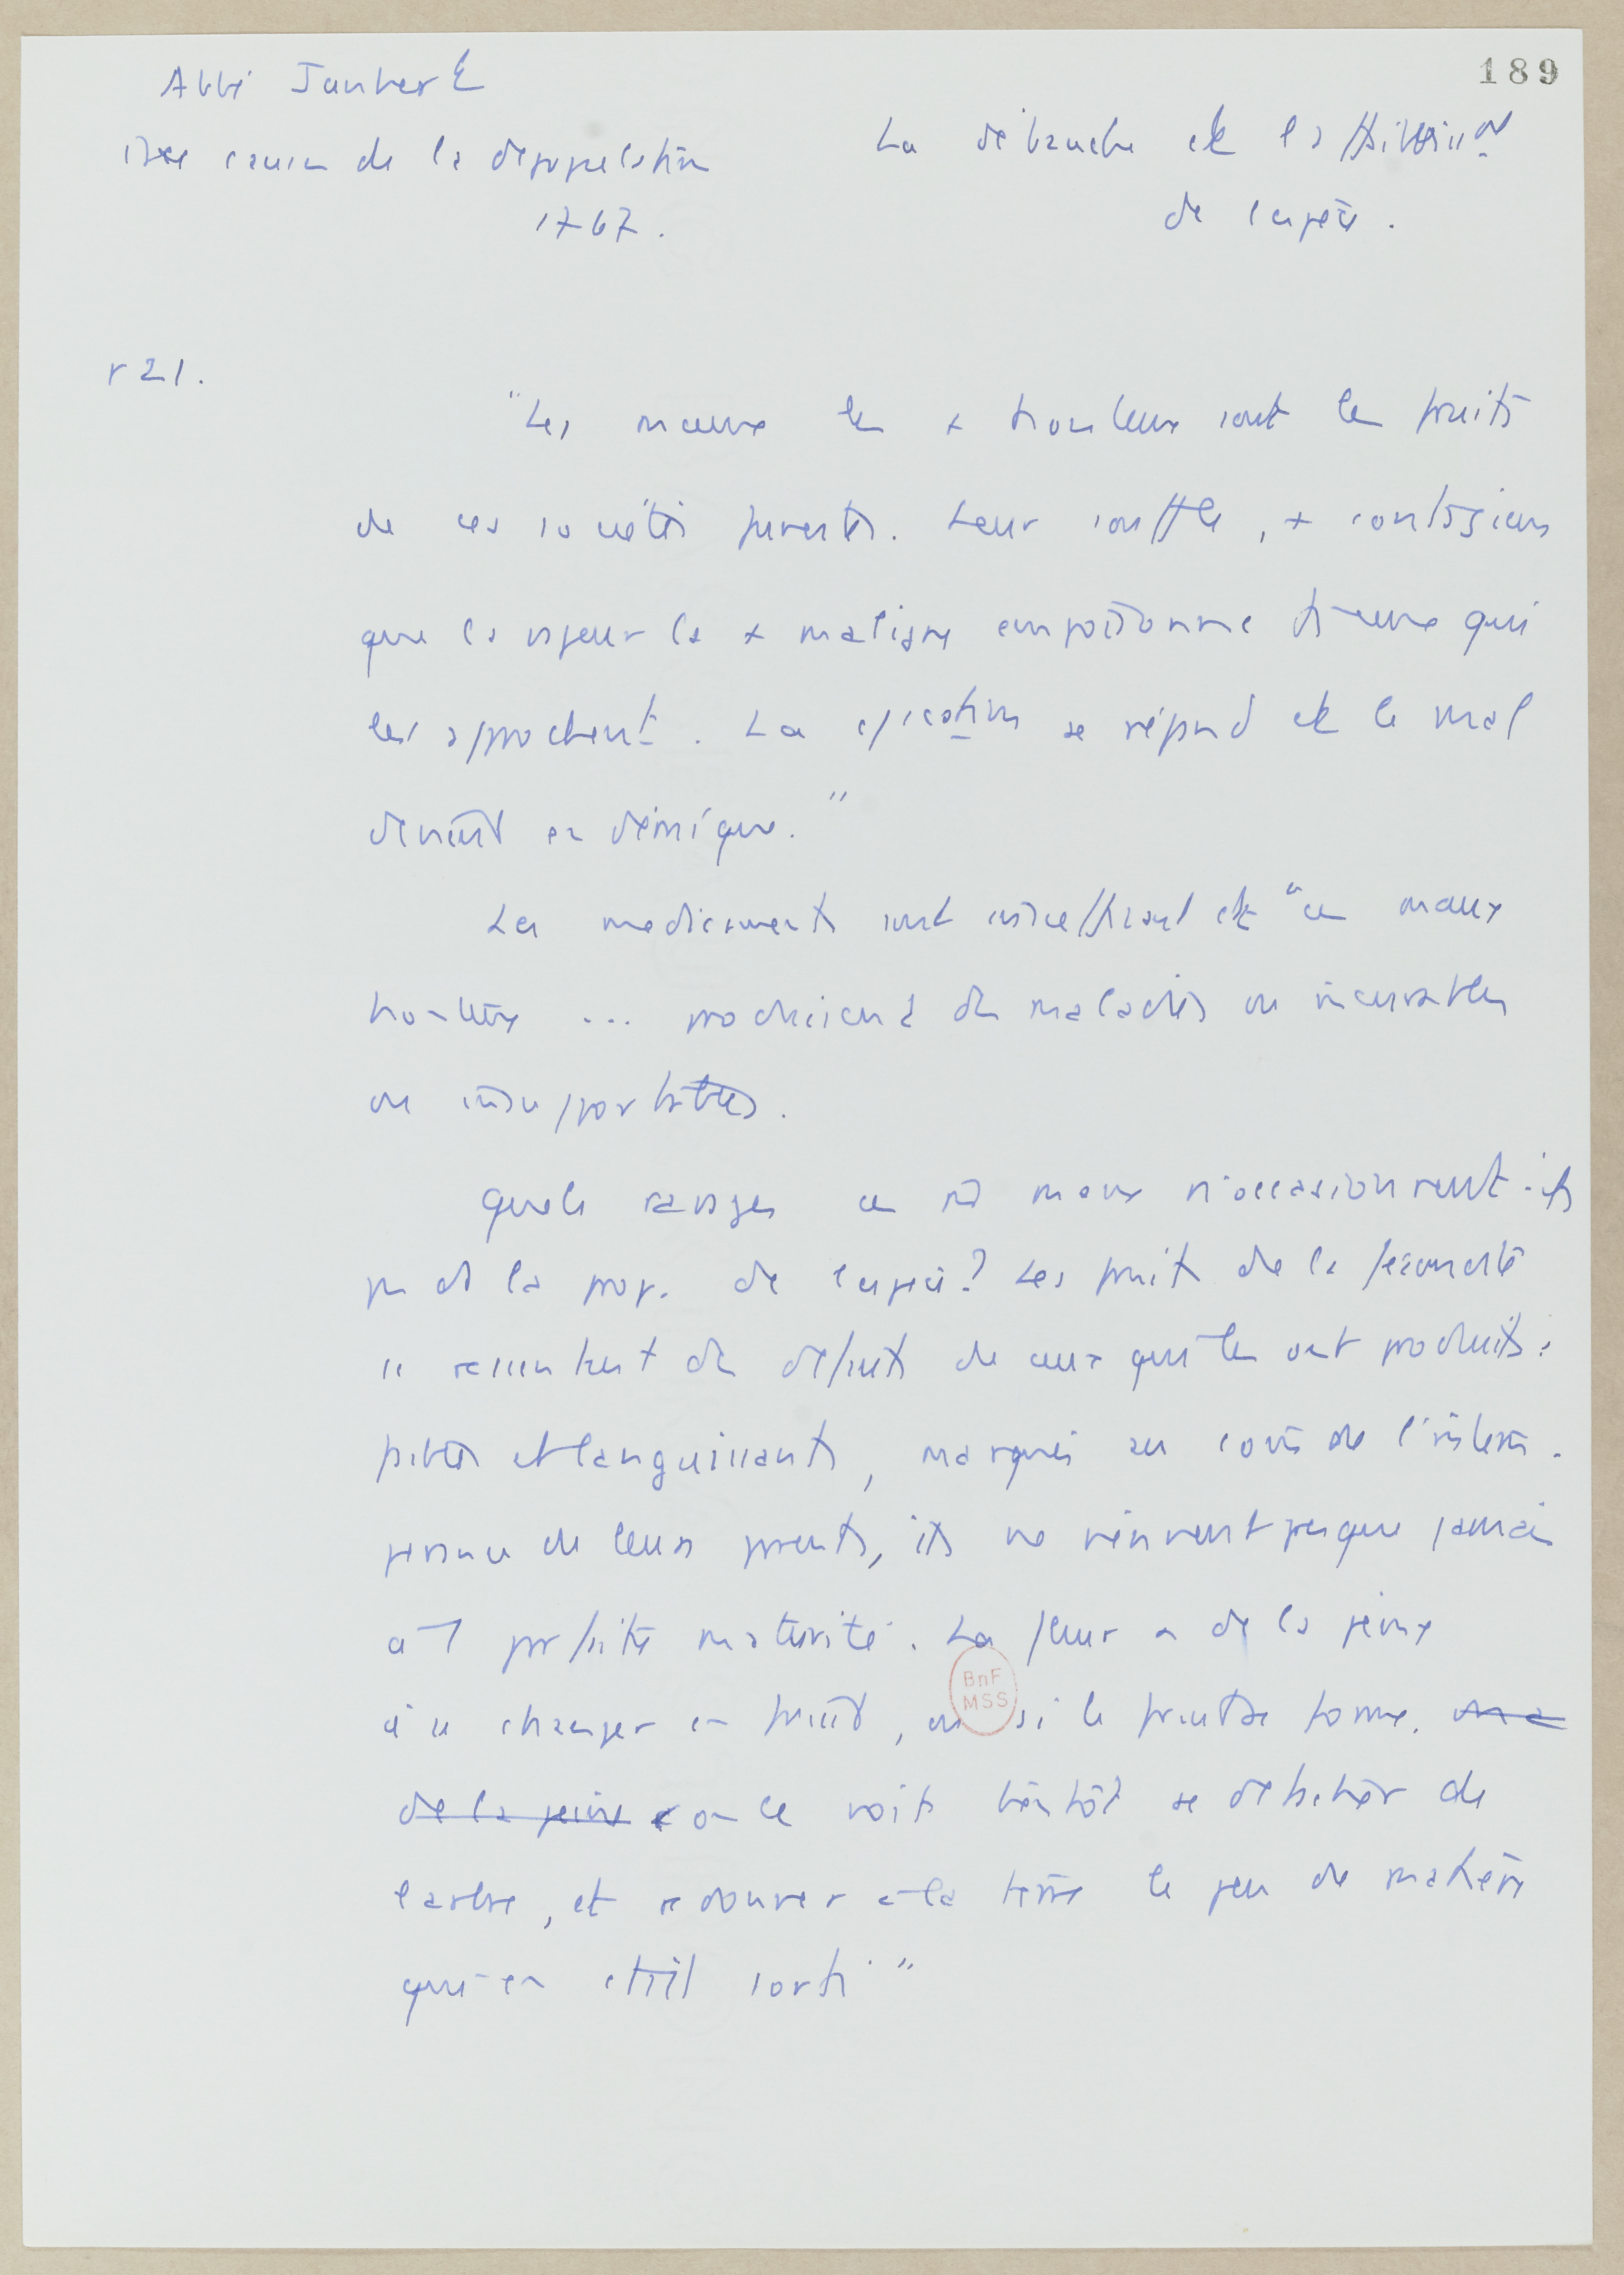 189
Abbé Jaubert
Des causes de la dépopulation
1767.
La débauche et l'affaiblisst
de l'espèce.
p 21.
"Les maux les + honteux sont les fruits
de ces sociétés perverties. Leur souffle, + contagieux
que la vapeur la + maligne empoisonne ts ceux qui
les approchent. La se répand et le mal
devient endémique."
Les médicaments sont insuffisants et "ces maux
honteux ... produisent des maladies ou incurables
ou insupportables.
Quels ravages ces maux n'occasionnent-ils
pas ds la prop. de l'espèce? Les fruits de la fécondité
se ressentent des défauts de ceux qui les ont produits:
faibles et languissants, marqués au coin de l'intem-
pérance de leurs parents, ils ne viennent presque jamais
à 1 parfaite maturité. La fleur a de la peine
BnF
MSS
à se changer en fruit, ou si le fruit se forme,
de la peine on le voit bientôt se détacher de
l'arbre, et redonner à la terre le peu de matière
qui en était sorti"